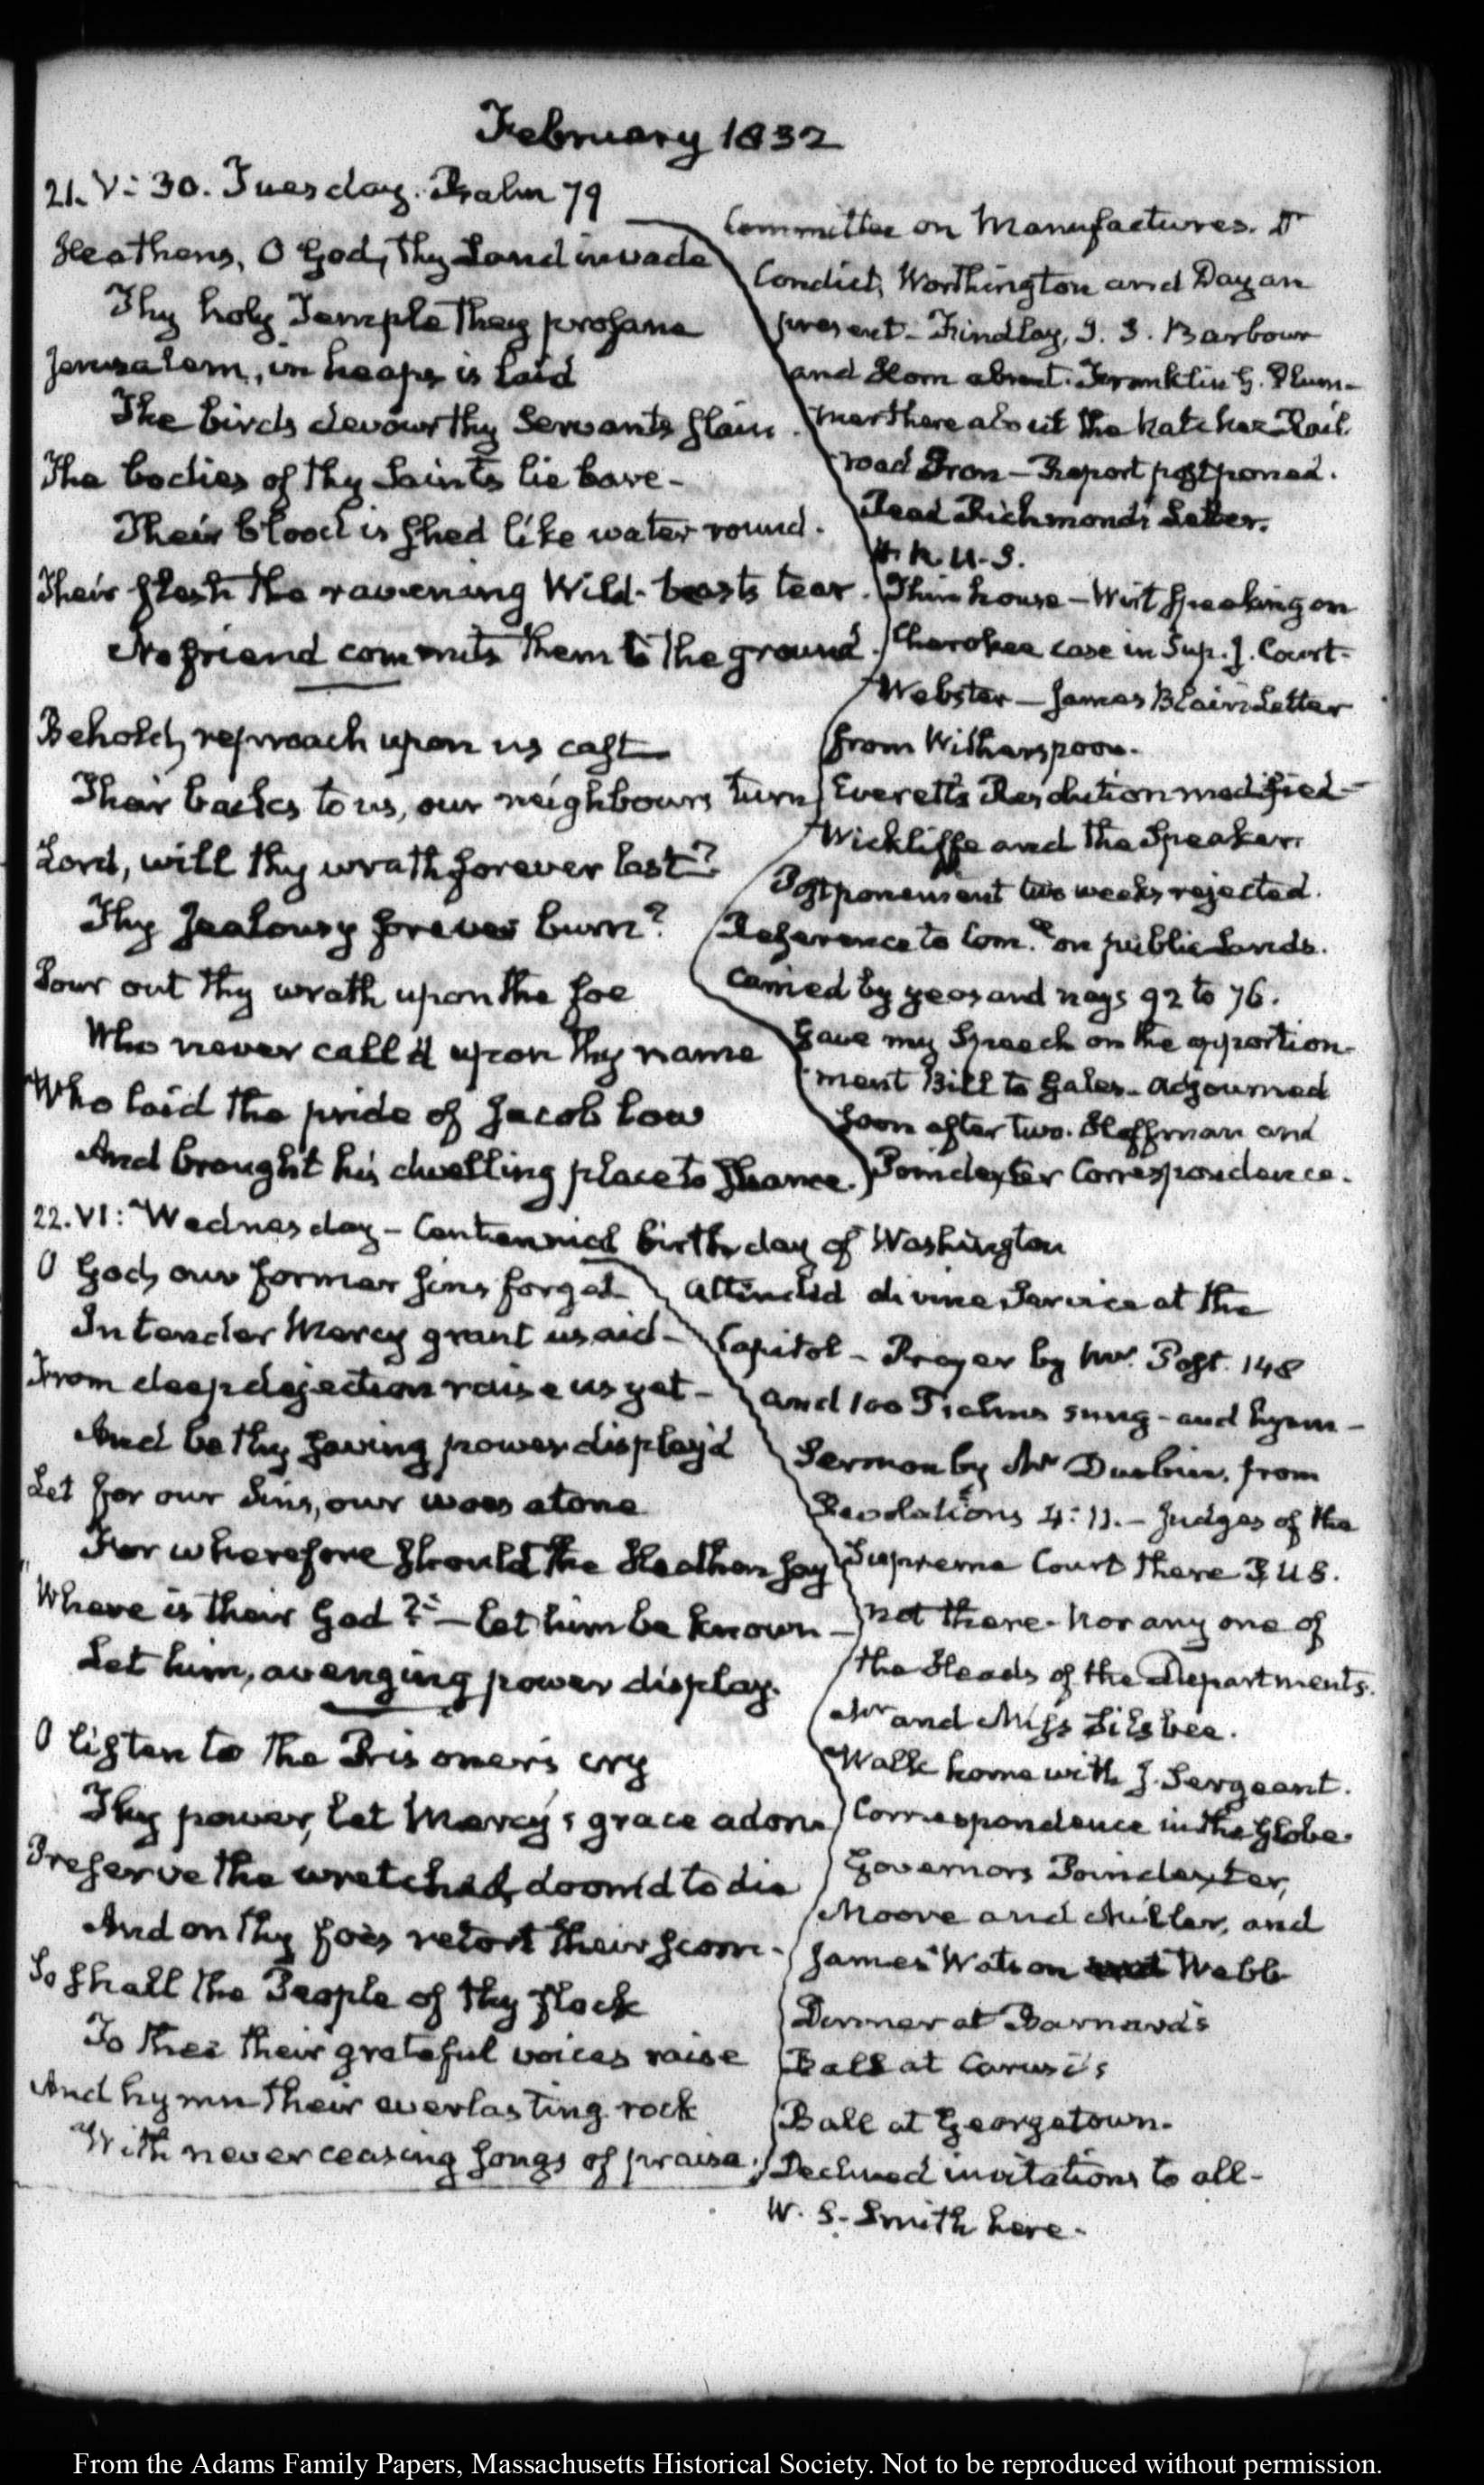 February 1832
21. V: 30. Tuesday. Psalm 79
Heathens, O God, thy Land invade
Thy holy Temple they profane
Jerusalem, in heaps is laid
The birds devour thy Servants slain.
The bodies of thy Saints lie bare -
Their blood is shed like water round.
Their flesh the ravening Wild-beasts tear.
No friend commits them to the ground.
Behold, reproach upon us cast
Their backs to us, our neighbours turn
Lord, will thy wrath forever last?
Thy Jealousy forever burn?
Pour out thy wrath upon the foe
Who never call'd upon thy name
Who laid the pride of Jacob low
And brought his dwelling place to shame.
Committee on Manufactures. Dr
Condict, Worthington and Dayan
present - Findlay, J. S. Barbour
and Horn absent. Franklin G. Plum-
mer there about the Natchez Rail
road Iron - Report postponed.
Read Richmond's Letter.
H. R. U. S.
Thin house - Wirt speaking on
Cherokee case in Sup. J. Court -
Webster - James Blair Letter
from Witherspoon.
Everett's Resolution modified -
Wickliffe and the Speaker.
Postponement two weeks rejected.
Reference to Com.ee on public Lands.
carried by yeas and nays 92 to 76.
Gave my Speech on the apportion-
ment Bill to Gales - adjourned
soon after two. Hoffman and
Poindexter Correspondence.
22. VI: Wednesday - Centennial birth day of Washington
O God, our former sins forget
In tender Mercy grant us aid -
From deep dejection raise us yet -
And be thy saving power display'd
Let for our Sins, our woes atone
For wherefore should the Heathen say
"Where is their God?" - let him be known -
Let him, avenging power display.
O listen to the Prisoner's cry
Thy power, let Mercy's grace adorn
Preserve the wretched, doom'd to die
And on thy foes retort their scorn -
So shall the People of thy flock
To thee their grateful voices raise
And hymn their everlasting rock
With never ceasing songs of praise.
Attended divine Service at the
Capitol - Prayer by Mr. Post. 148
and 100 Psalms sung - and hymn -
Sermon by Mr Durbin, from
Revelations 4:11. - Judges of the
Supreme Court there P. U S.
not there - nor any one of
the Heads of the Departments.
Mr and Miss Silsbee.
Walk home with J. Sergeant.
Correspondence in the Globe.
Governors Poindexter,
Moore and Miller, and
James Watson Webb
Dinner at Barnard's
Ball at Carusi's
Ball at Georgetown.
Declined invitations to all -
W. S. Smith here -
From the Adams Family Papers, Massachusetts Historical Society. Not to be reproduced without permission.